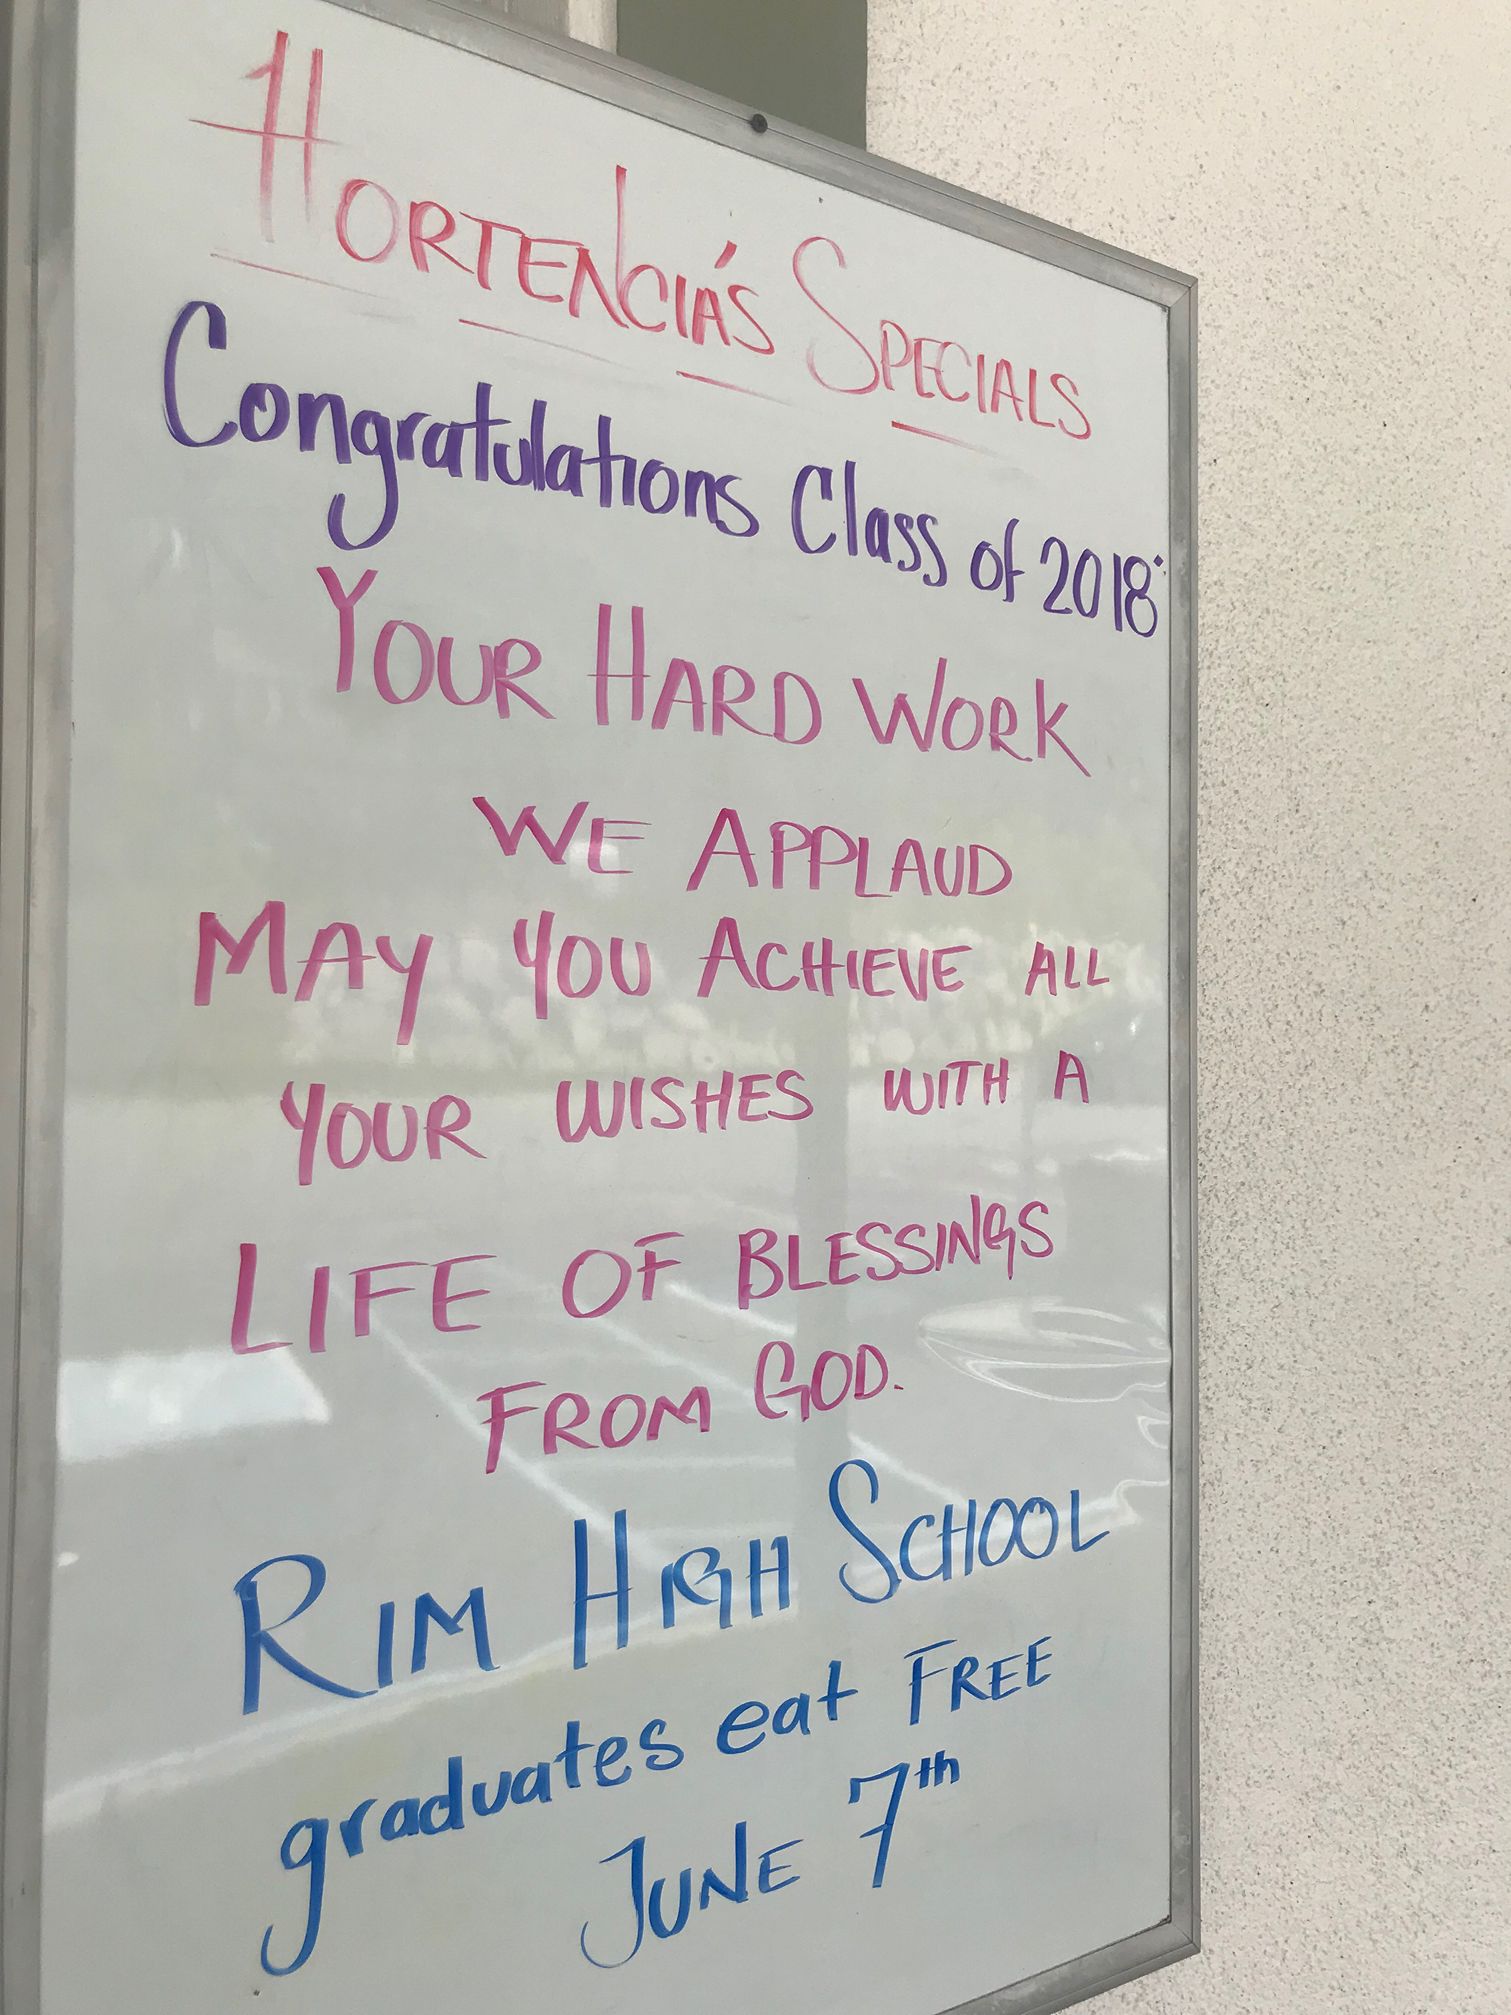 HORTENCIA'S SPECIALS
Congratulations Class of 2018:
YOUR HARD WORK
WE APPLAUD
MAY YOU ACHIEVE ALL
YOUR WISHES WITH A
LIFE OF BLESSINGS
FROM GOD.
RIM HIGH SCHOOL
graduates eat FREE
JUNE 7th